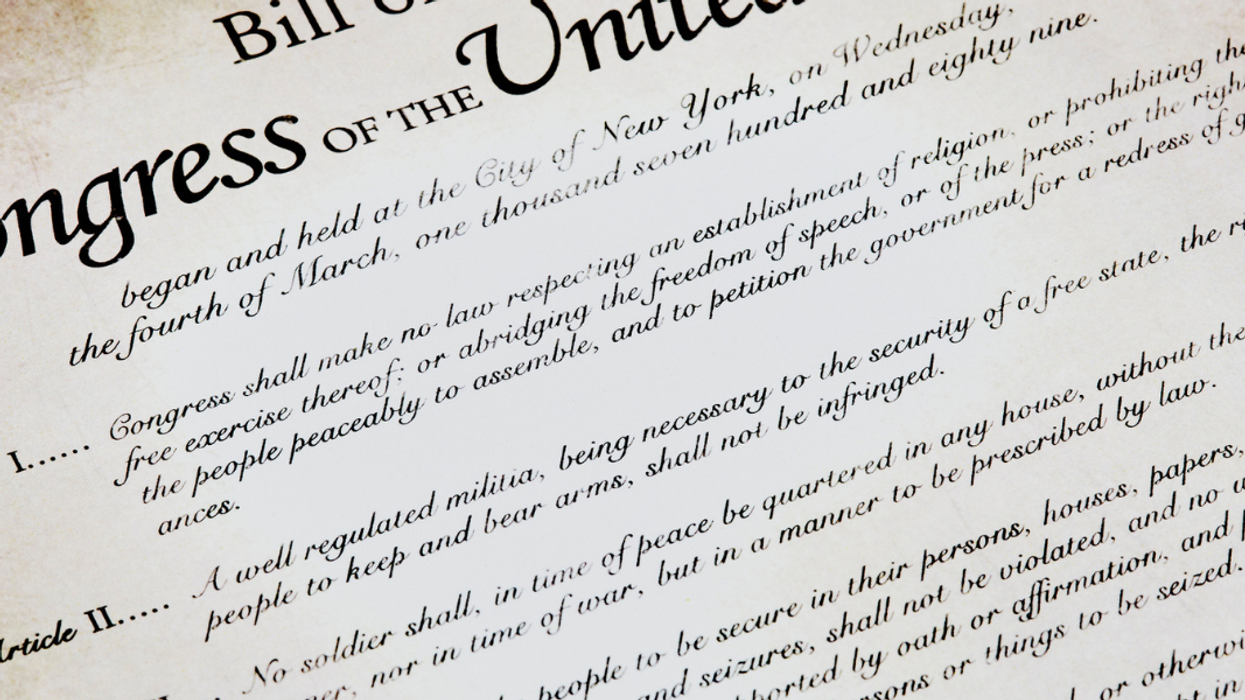 Bill of
ongress OF THE United
began and held at the City of New York, on Wednesday,
the fourth of March, one thousand seven hundred and eighty nine.
I...... Congress shall make no law respecting an establishment of religion, or prohibiting the
free exercise thereof; or abridging the freedom of speech, or of the press; or the righ
the people peaceably to assemble, and to petition the government for a redress of g
ances.
Article II..... A well regulated militia, being necessary to the security of a free state, the ri
people to keep and bear arms, shall not be infringed.
No soldier shall, in time of peace be quartered in any house, without the
er, nor in time of war, but in a manner to be prescribed by law.
people to be secure in their persons, houses, papers,
and seizures, shall not be violated, and no w
ported by oath or affirmation, and p
rsons or things to be seized.
or otherwi